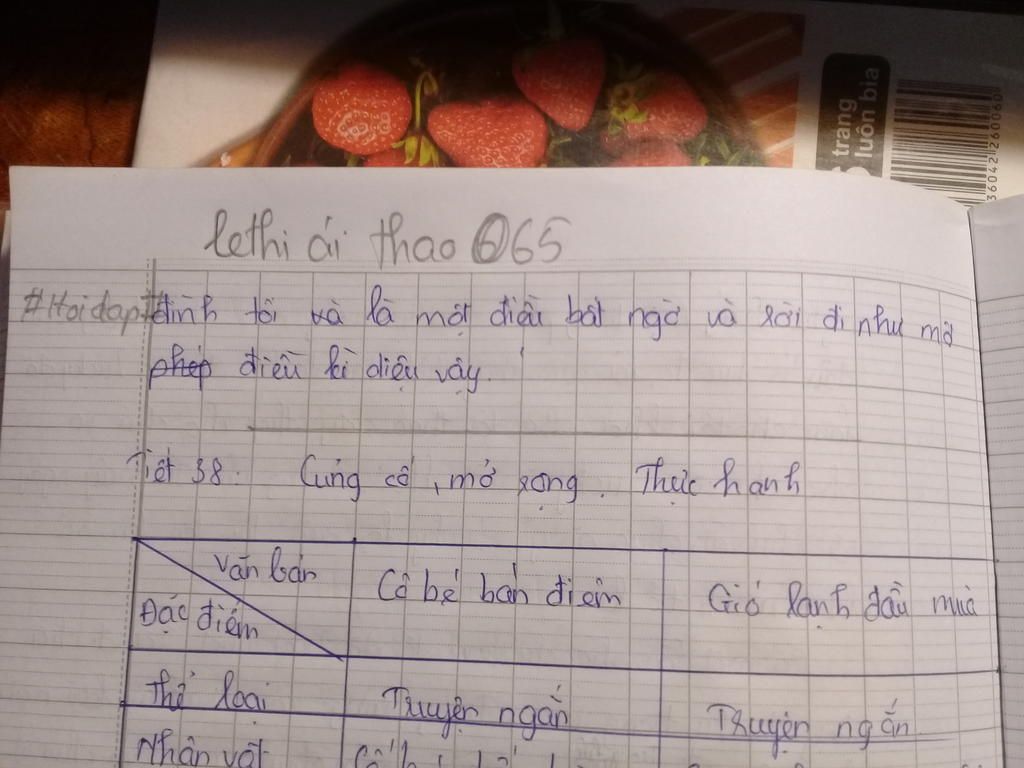 trang
luôn bìa
36042 260060
lethi ái thao 065
#Hoidap
đình tôi và là một điều bất ngờ và rời đi như mở
phép điều kì diệu vậy.
Tiết 38: Củng cố, mở rộng. Thực hanh
Văn bản
Đặc điểm
Cô bé bán diêm
Gió lạnh đầu mùa
Thể loại
Truyện ngắn
Truyện ngắn
Nhân vật